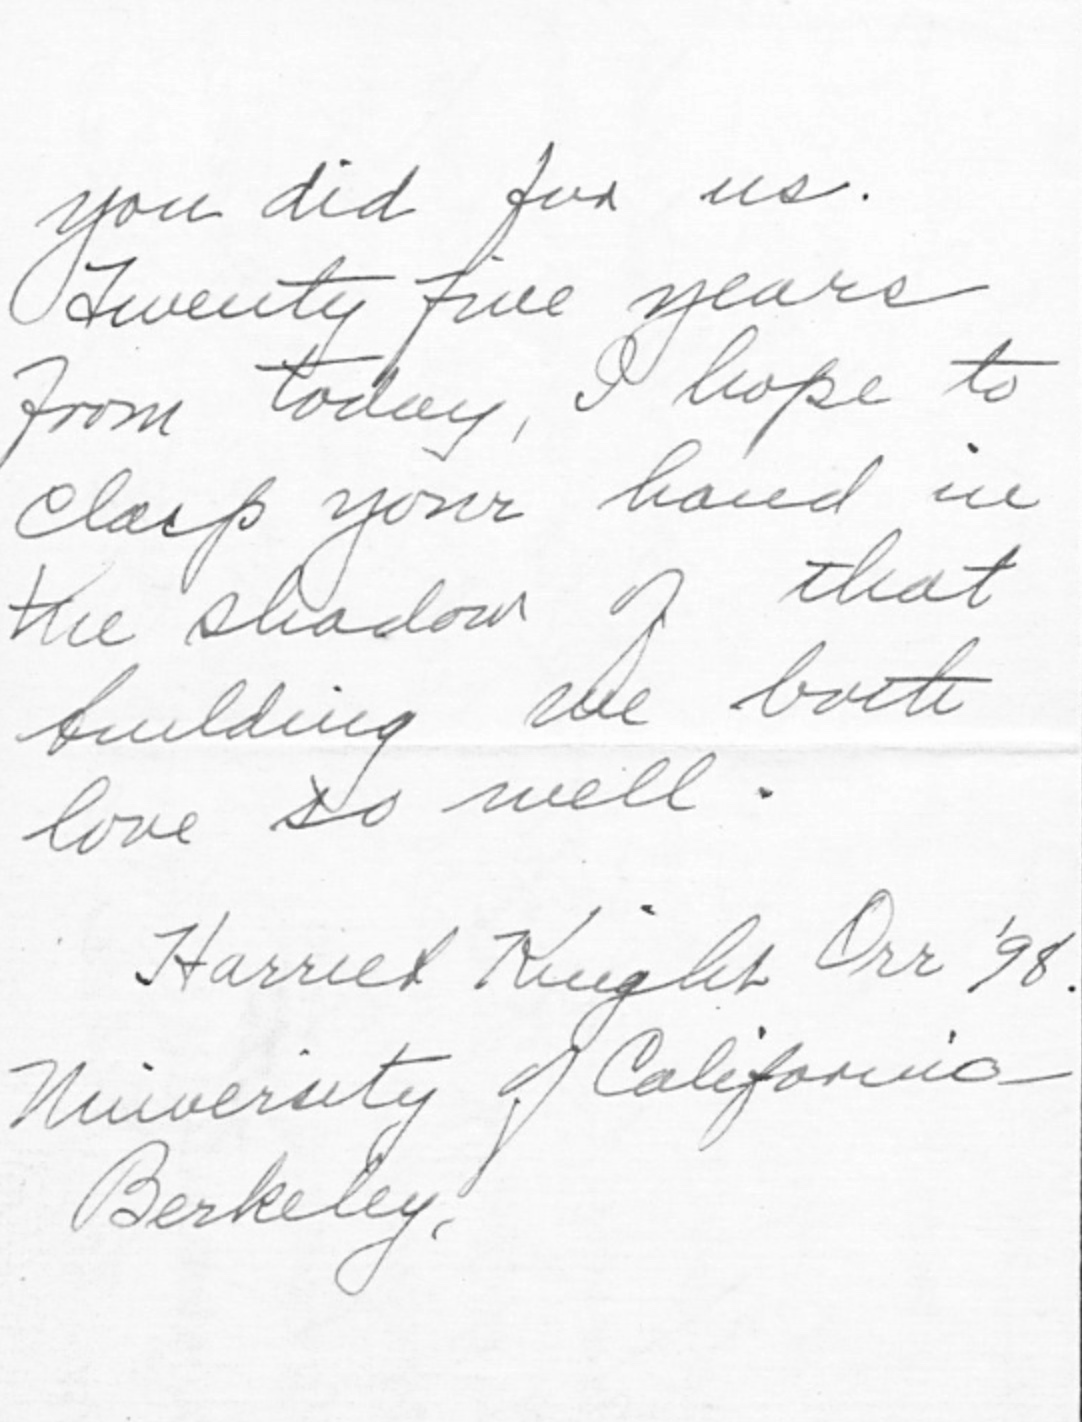 you did for us.
Twenty five years
from today, I hope to
clasp your hand in
the shadow of that
building we both
love so well.
Harriet Knight Orr '98.
University of California
Berkeley.